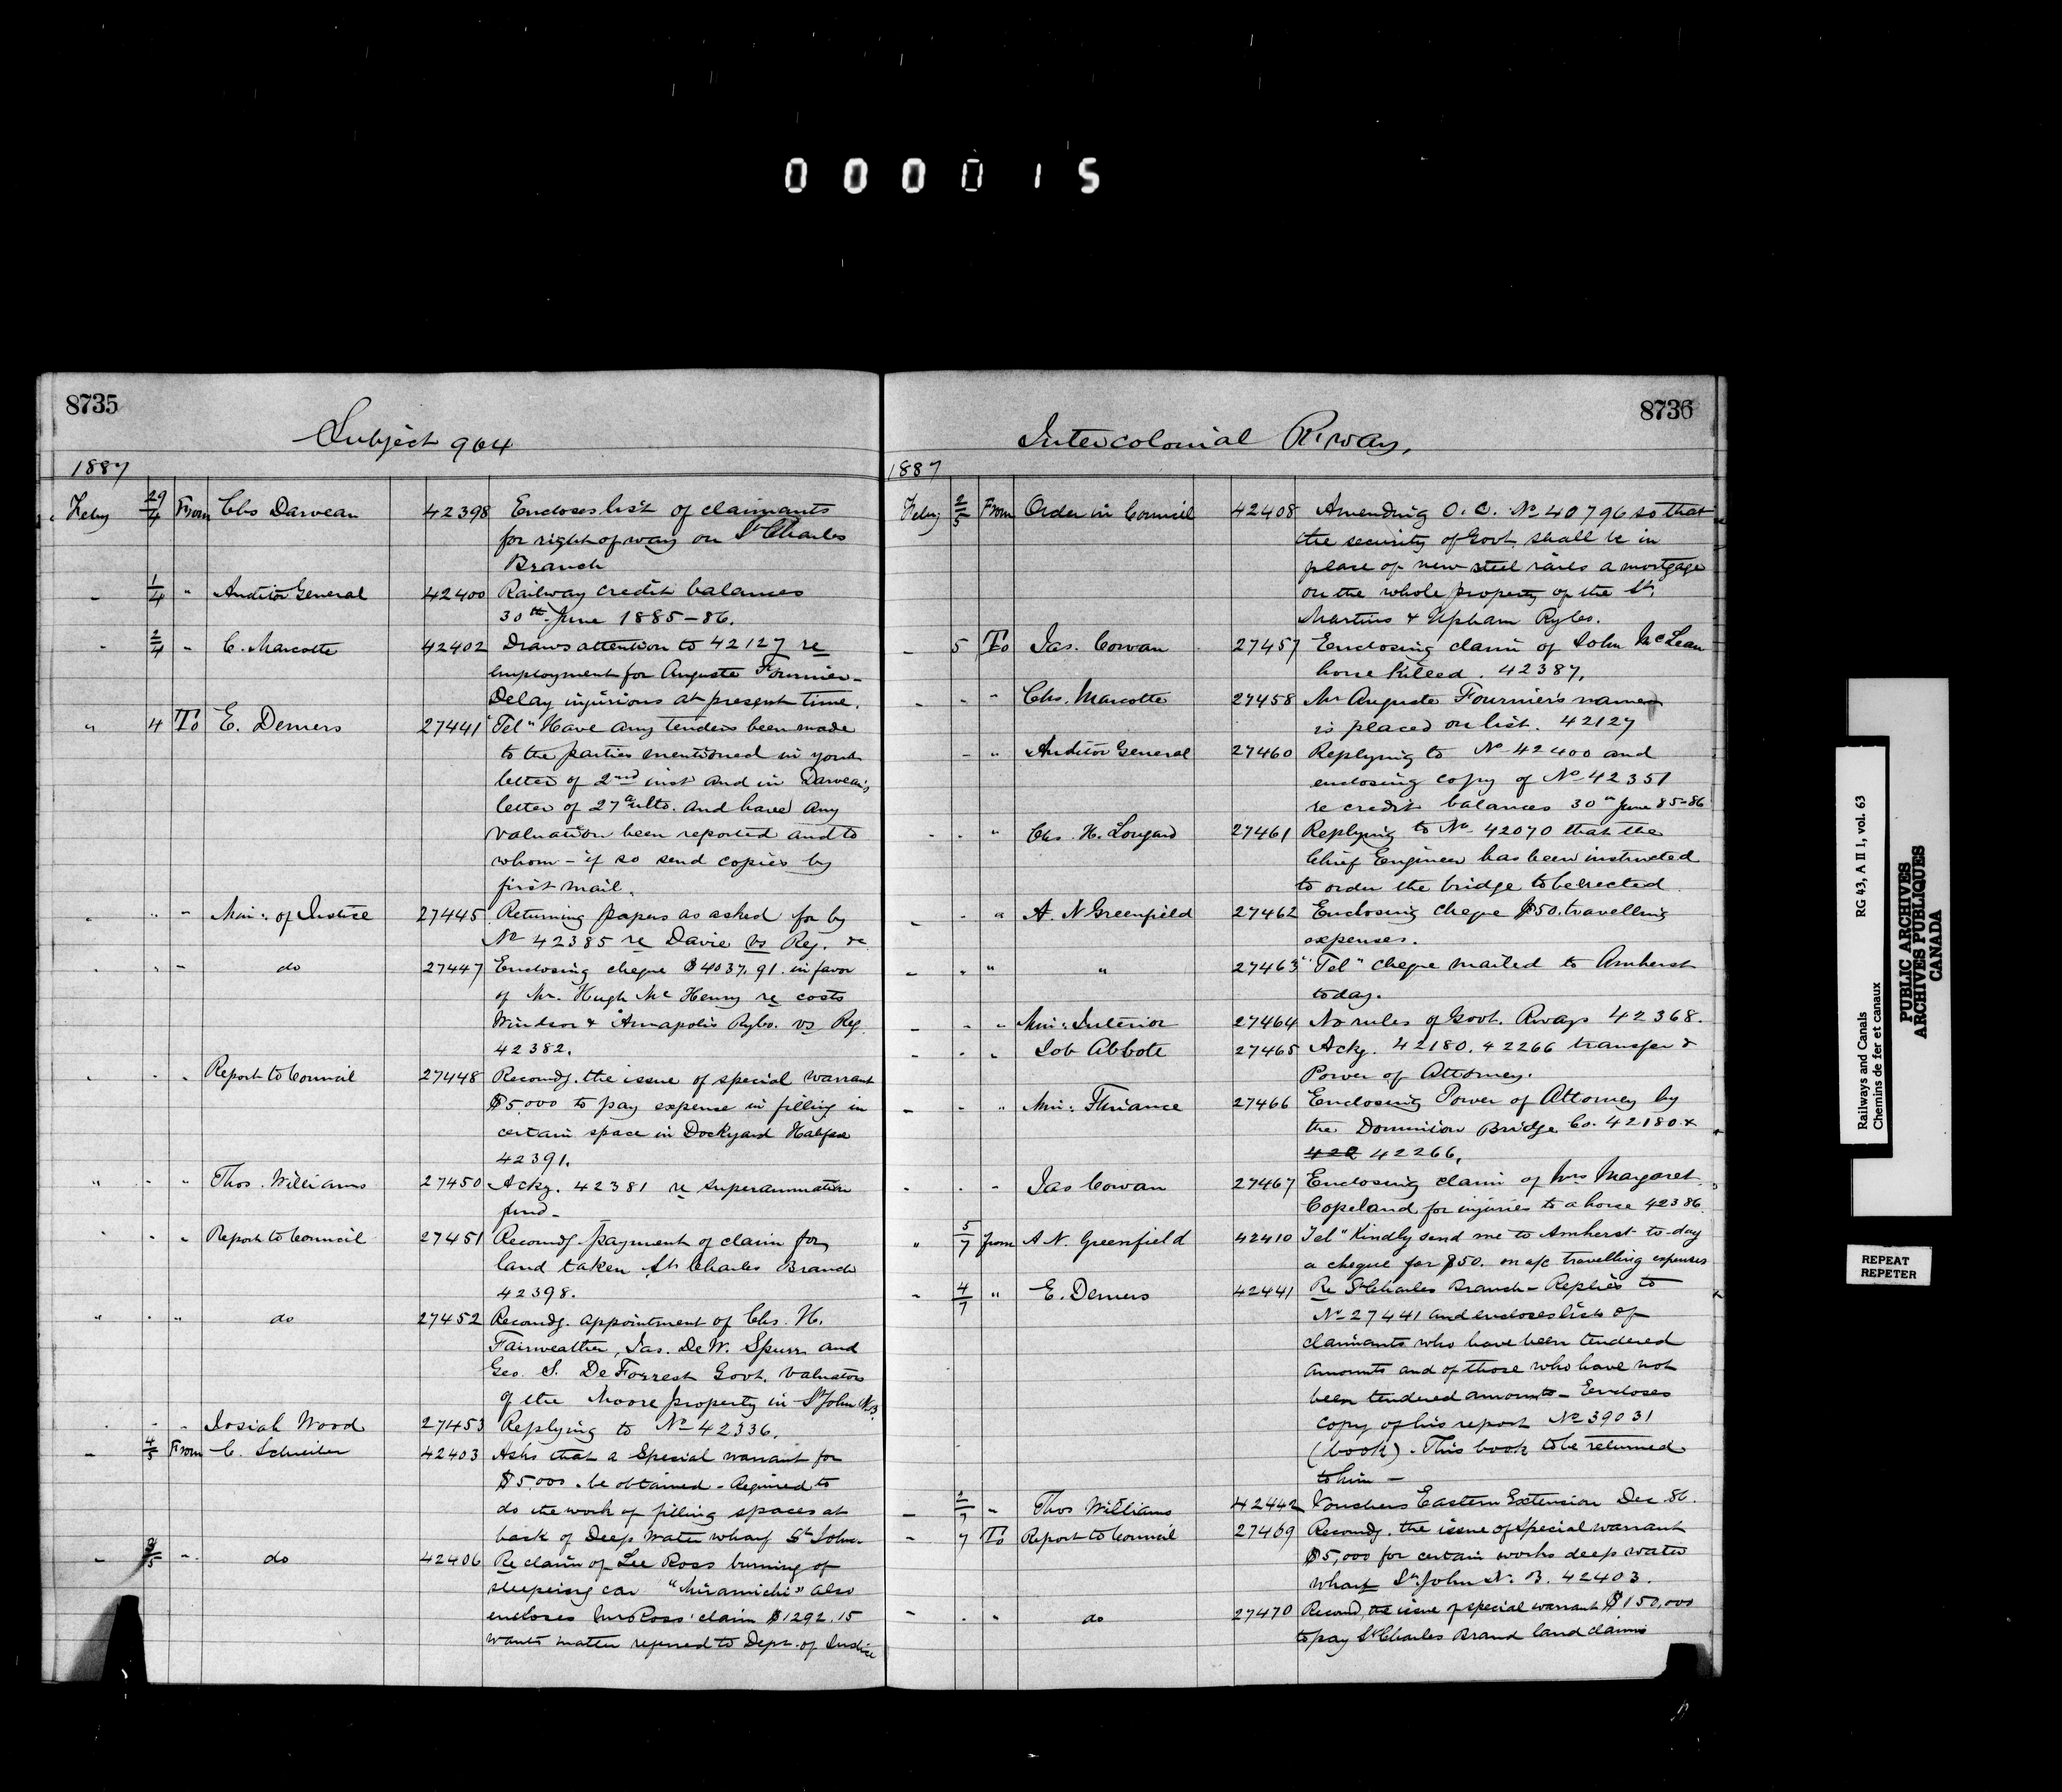 000015
8735
Subject 904
1887
Feby 29/4 From Chs Darveau 42398 Encloses list of claimants
for right of way on St Charles
Branch
- 1/4 " Auditor General 42400 Railway credit balances
30th June 1885-86.
- 2/4 - C. Marcotte 42402 Draws attention to 42127 re
employment for Auguste Fournier -
Delay injurious at present time.
" 4 To E. Demers 27441 "Tel" Have any tenders been made
to the parties mentioned in your
letter of 2nd inst and in Darveau's
letter of 27th ulto. and have any
valuation been reported and to
whom - if so send copies by
first mail.
" " - Min: of Justice 27445 Returning papers as asked for by
No 42385 re Davie vs Reg. &c
" " - do 27447 Enclosing cheque $4037.91. in favor
of Mr. Hugh McHenry re costs
Windsor & Annapolis Rylo. vs Reg.
42382.
" " " Report to Council 27448 Recomdg. the issue of special warrant
$5,000 to pay expense in filling in
certain space in Dockyard Halifax
42391.
" " " Thos. Williams 27450 Ackg. 42381 re superannuation
fund -
" " " Report to Council 27451 Recomdg payment of claim for
land taken St Charles Branch
42398.
" " " do 27452 Recomdg. appointment of Chs. H.
Fairweather, Jas. De W. Spurr and
Geo. S. DeForrest Govt. valuators
of the Moore property in St John N.B.
- - Josiah Wood 27453 Replying to No 42336.
- 4/5 From C. Schreiber 42403 Asks that a Special warrant for
$5,000 be obtained - Required to
do the work of filling spaces at
back of Deep Water wharf St John.
- /5 - do 42406 Re claim of Lee Ross burning of
sleeping car "Miramichi" also
encloses Mr Ross' claim $1292.15
wants matter referred to Dept. of Justice
8736
Intercolonial R'way,
1887
Feby 2/5 From Order in Council 42408 Amending O.C. No 40796 so that
the security of Govt. shall be in
place of new steel rails a mortgage
on the whole property of the St.
Martins & Upham Rylo.
- 5 To Jas. Cowan 27457 Enclosing claim of John McLean
horse killed. 42387.
- - " Chs. Marcotte 27458 Mr Auguste Fournier's name
is placed on list. 42127
- " Auditor General 27460 Replying to No 42400 and
enclosing copy of No 42351
re credit balances 30th June 85-86
- - " Chs. H. Longard 27461 Replying to No 42070 that the
Chief Engineer has been instructed
to order the bridge to be erected
- - " A. N Greenfield 27462 Enclosing cheque $50. travelling
expenses.
- " " " 27463 "Tel" cheque mailed to Amherst
today.
- - " Min: Interior 27464 No rules of Govt. Rways 42368.
- - " Job Abbott 27465 Ackg. 42180. 42266 transfer &
Power of Attorney.
- - " Min: Finance 27466 Enclosing Power of Attorney by
the Dominion Bridge Co. 42180 &
422 42266.
- - - Jas Cowan 27467 Enclosing claim of Mrs Margaret
Copeland for injuries to a horse 42386
" 5/7 from A N. Greenfield 42410 Tel" Kindly send me to Amherst to-day
a cheque for $50. on a/c travelling expenses
- 4/7 " E. Demers 42441 Re St Charles Branch - Replies to
No 27441 and encloses lists of
claimants who have been tendered
amounts and of those who have not
been tendered amounts - Encloses
copy of his report No 39031
(book). This book to be returned
to him -
- 2/7 - Thos Williams 42442 Vouchers Eastern Extension Dec 86.
- 7 To Report to Council 27469 Recomdg. the issue of special warrant
$5,000 for certain works deep water
wharf St. John N. B. 42403.
- - " do 27470 Recomd. the issue of special warrant $150,000
to pay St Charles Branch land claims
Railways and Canals RG 43, A II 1, vol. 63
Chemins de fer et canaux
PUBLIC ARCHIVES
ARCHIVES PUBLIQUES
CANADA
REPEAT
REPETER